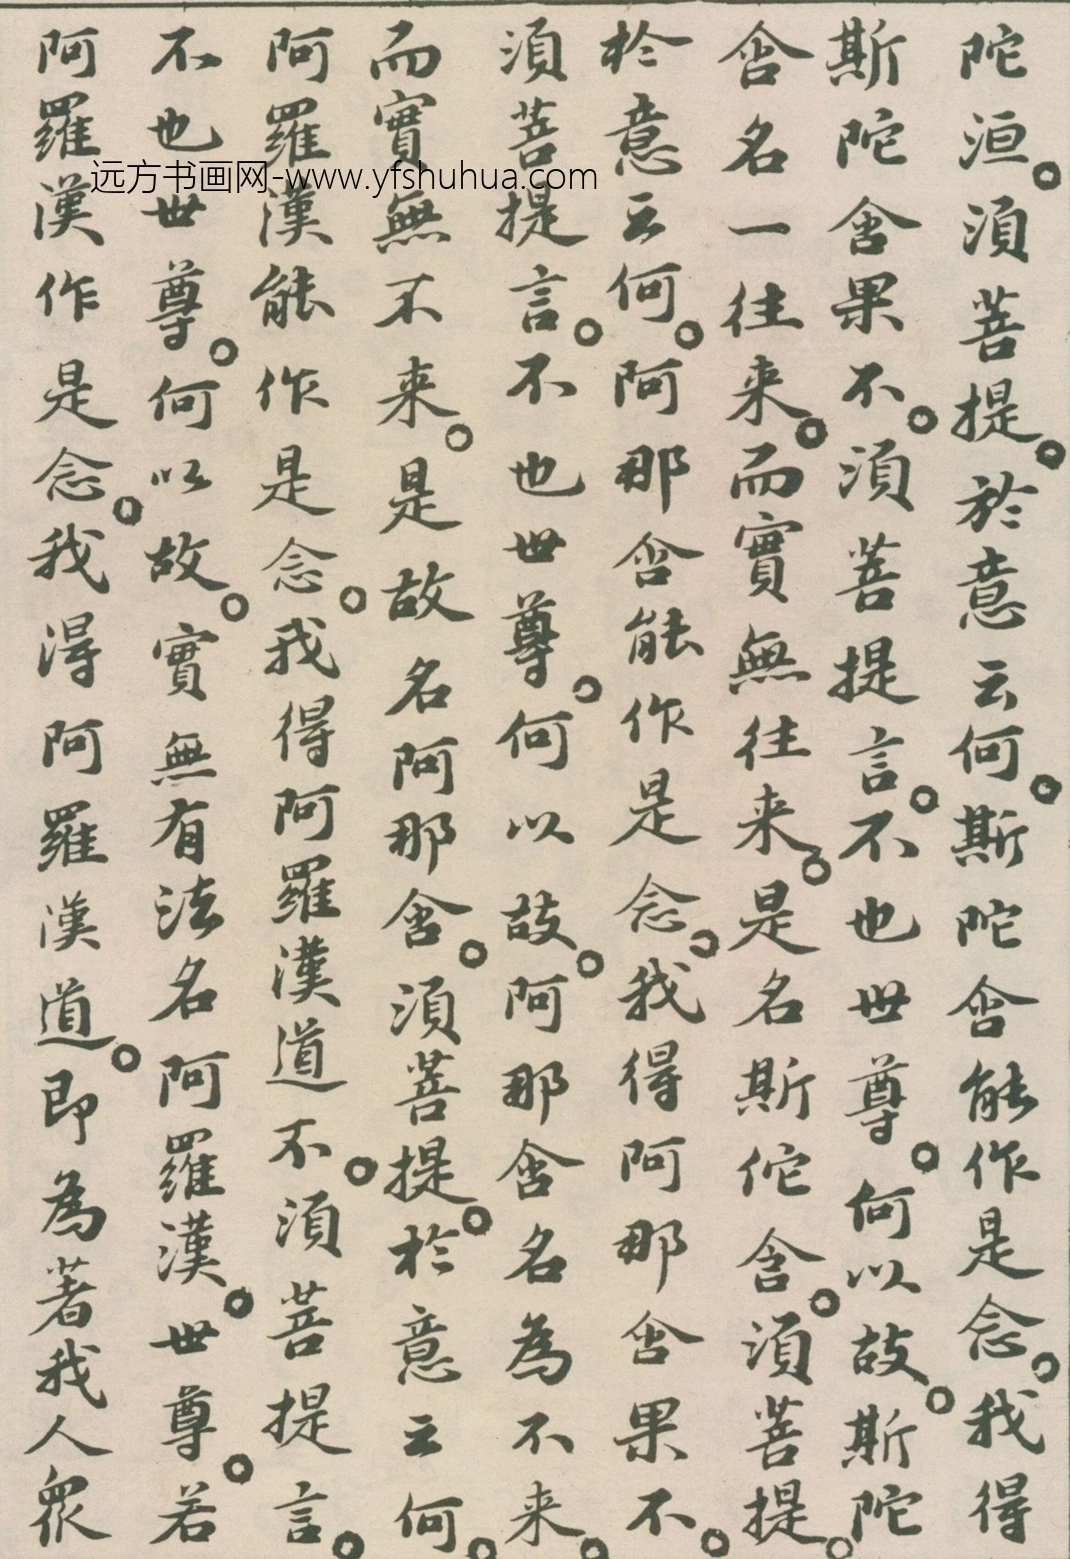 陀洹。須菩提。於意云何。斯陀含能作是念。我得
斯陀含果不。須菩提言。不也世尊。何以故。斯陀
含名一往来。而實無往来。是名斯佗含。須菩提。
於意云何。阿那含能作是念。我得阿那含果不。
須菩提言。不也世尊。何以故。阿那含名為不来。
而實無不来。是故名阿那含。須菩提。於意云何。
阿羅漢能作是念。我得阿羅漢道不。須菩提言。
不也世尊。何以故。實無有法名阿羅漢。世尊。若
阿羅漢作是念。我得阿羅漢道。即為著我人衆
远方书画网-www.yfshuhua.com